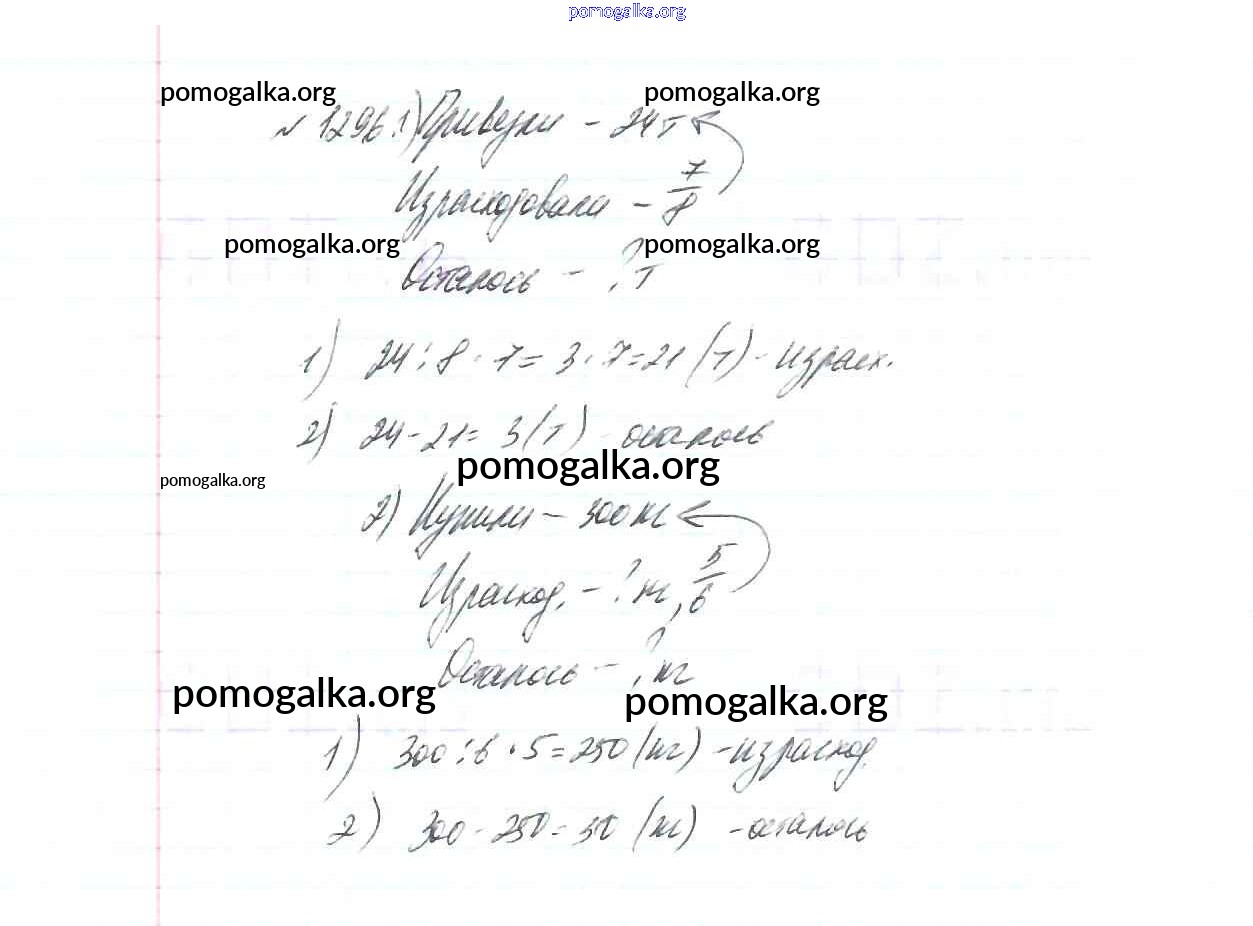 pomogalka.org
pomogalka.org pomogalka.org
№ 1296.1) Привезли - 24 т
Израсходовали - 7/8
pomogalka.org pomogalka.org
Осталось - ? т
1) 24 : 8 · 7 = 3 · 7 = 21 (т) - израсх.
2) 24 - 21 = 3 (т) - осталось
pomogalka.org
pomogalka.org
2) Купили - 300 кг
Израсход. - ? кг, 5/6
Осталось - ? кг
pomogalka.org pomogalka.org
1) 300 : 6 · 5 = 250 (кг) - израсход.
2) 300 - 250 = 50 (кг) - осталось